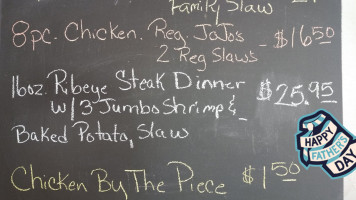 Family Slaw
8pc. Chicken. Reg. JoJos $16.50
2 Reg Slaws
16oz. Ribeye Steak Dinner $25.95
w/3 Jumbo Shrimp &
Baked Potato, Slaw
HAPPY
FATHER'S
DAY
Chicken By The Piece $1.50